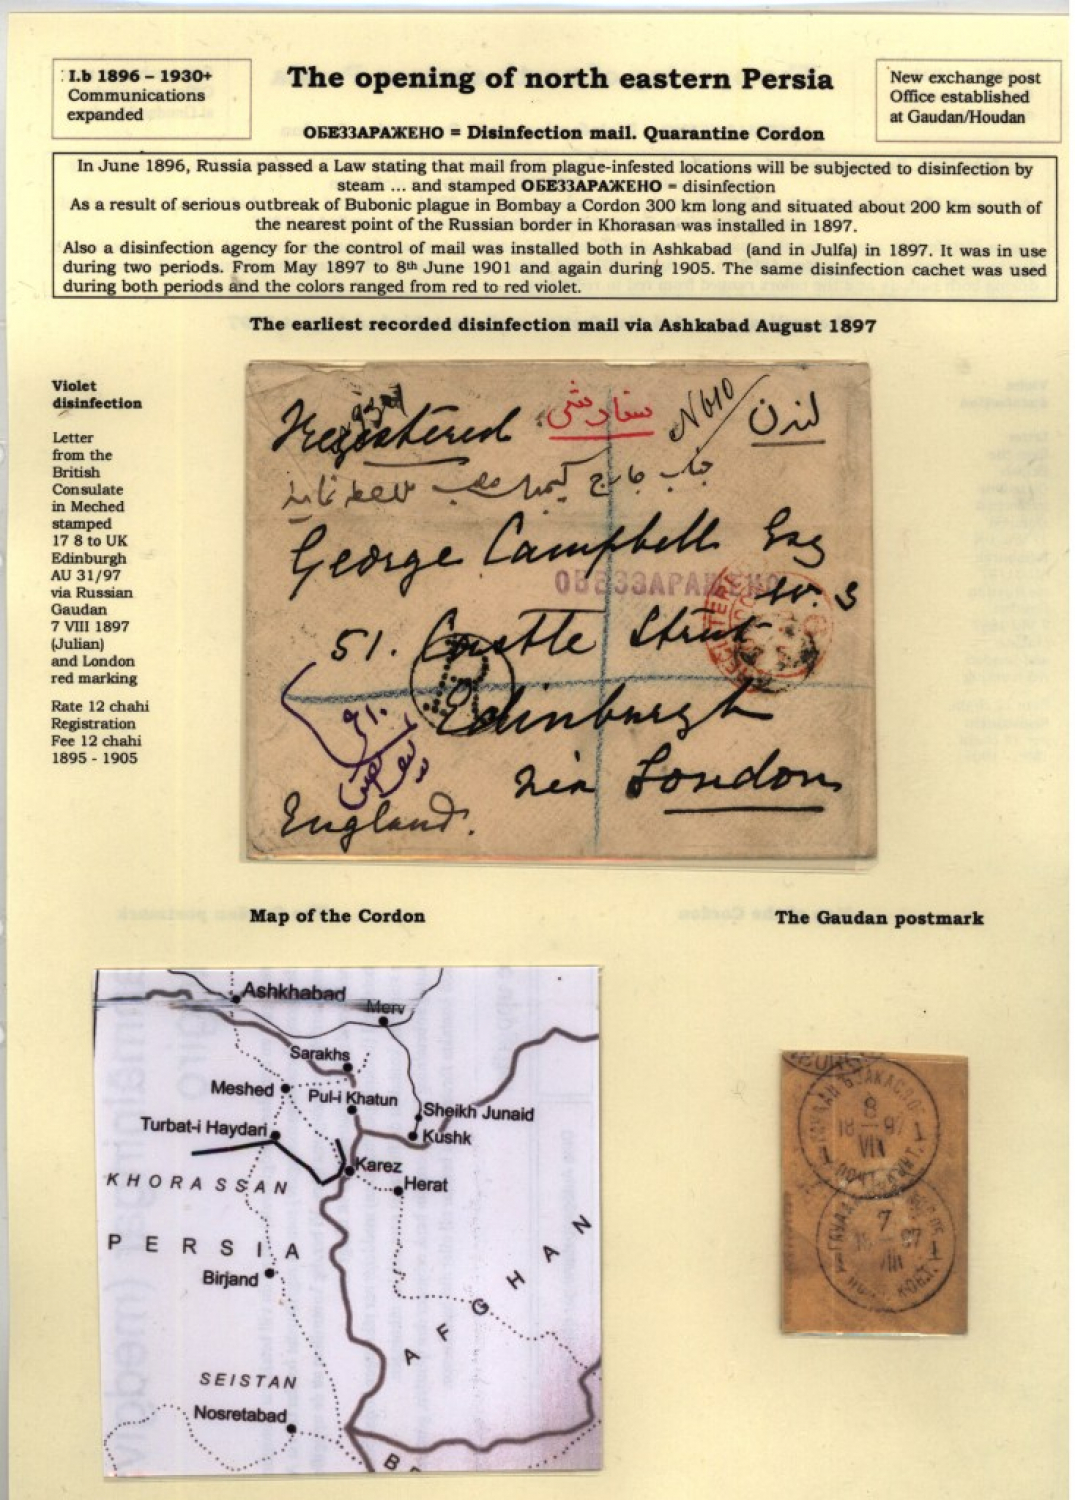 I.b 1896 – 1930+
Communications
expanded
The opening of north eastern Persia
New exchange post
Office established
at Gaudan/Houdan
ОБЕЗЗАРАЖЕНО = Disinfection mail. Quarantine Cordon
In June 1896, Russia passed a Law stating that mail from plague-infested locations will be subjected to disinfection by
steam ... and stamped ОБЕЗЗАРАЖЕНО = disinfection
As a result of serious outbreak of Bubonic plague in Bombay a Cordon 300 km long and situated about 200 km south of
the nearest point of the Russian border in Khorasan was installed in 1897.
Also a disinfection agency for the control of mail was installed both in Ashkabad (and in Julfa) in 1897. It was in use
during two periods. From May 1897 to 8th June 1901 and again during 1905. The same disinfection cachet was used
during both periods and the colors ranged from red to red violet.
The earliest recorded disinfection mail via Ashkabad August 1897
Violet
disinfection
Letter
from the
British
Consulate
in Meched
stamped
17 8 to UK
Edinburgh
AU 31/97
via Russian
Gaudan
7 VIII 1897
(Julian)
and London
red marking
Rate 12 chahi
Registration
Fee 12 chahi
1895 - 1905
Registered سفارشی لندن
George Campbell Esq
ОБЕЗЗАРАЖЕНО
W. S
51. Castle Street
R
Edinburgh
via London
England.
Map of the Cordon
The Gaudan postmark
Ashkhabad
Merv
Sarakhs
Meshed
Pul-i Khatun
Sheikh Junaid
Turbat-i Haydari
Kushk
Karez
KHORASSAN
Herat
PERSIA
AFGHAN
Birjand
SEISTAN
Nosretabad
8
18 – 97
VIII
7
18 – 97
VIII